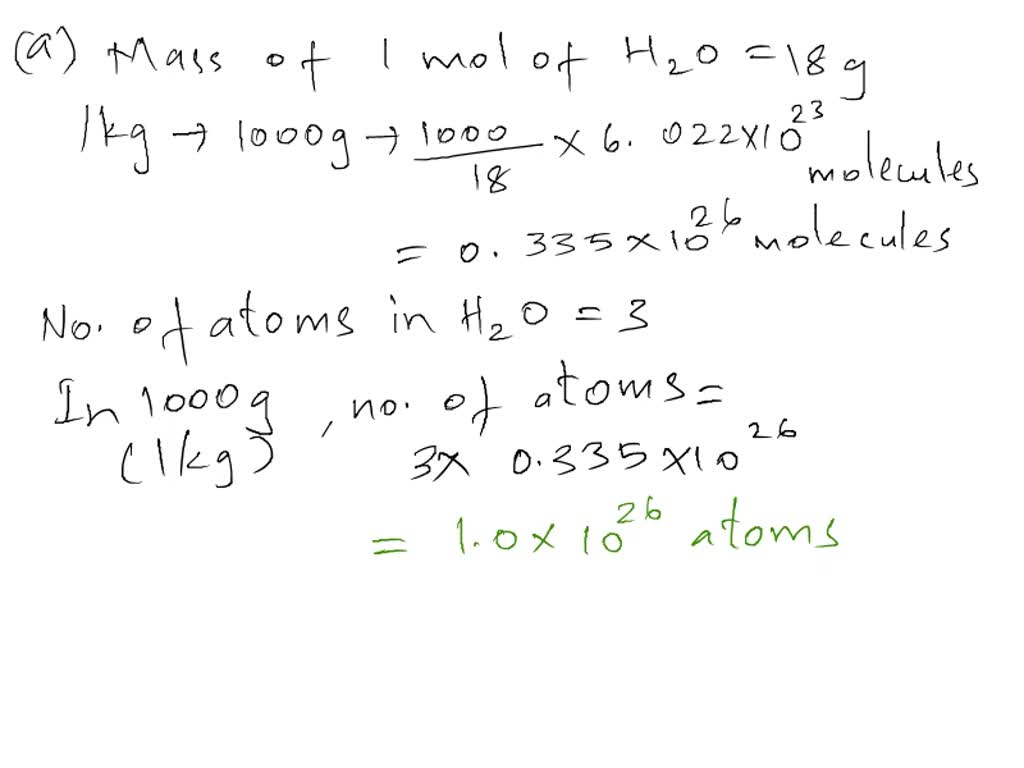 (a) Mass of 1 mol of H₂O = 18 g
1kg → 1000g → 1000/18 × 6.022×10²³ molecules
= 0.335×10²⁶ molecules
No. of atoms in H₂O = 3
In 1000g (1kg), no. of atoms =
3× 0.335×10²⁶
= 1.0×10²⁶ atoms